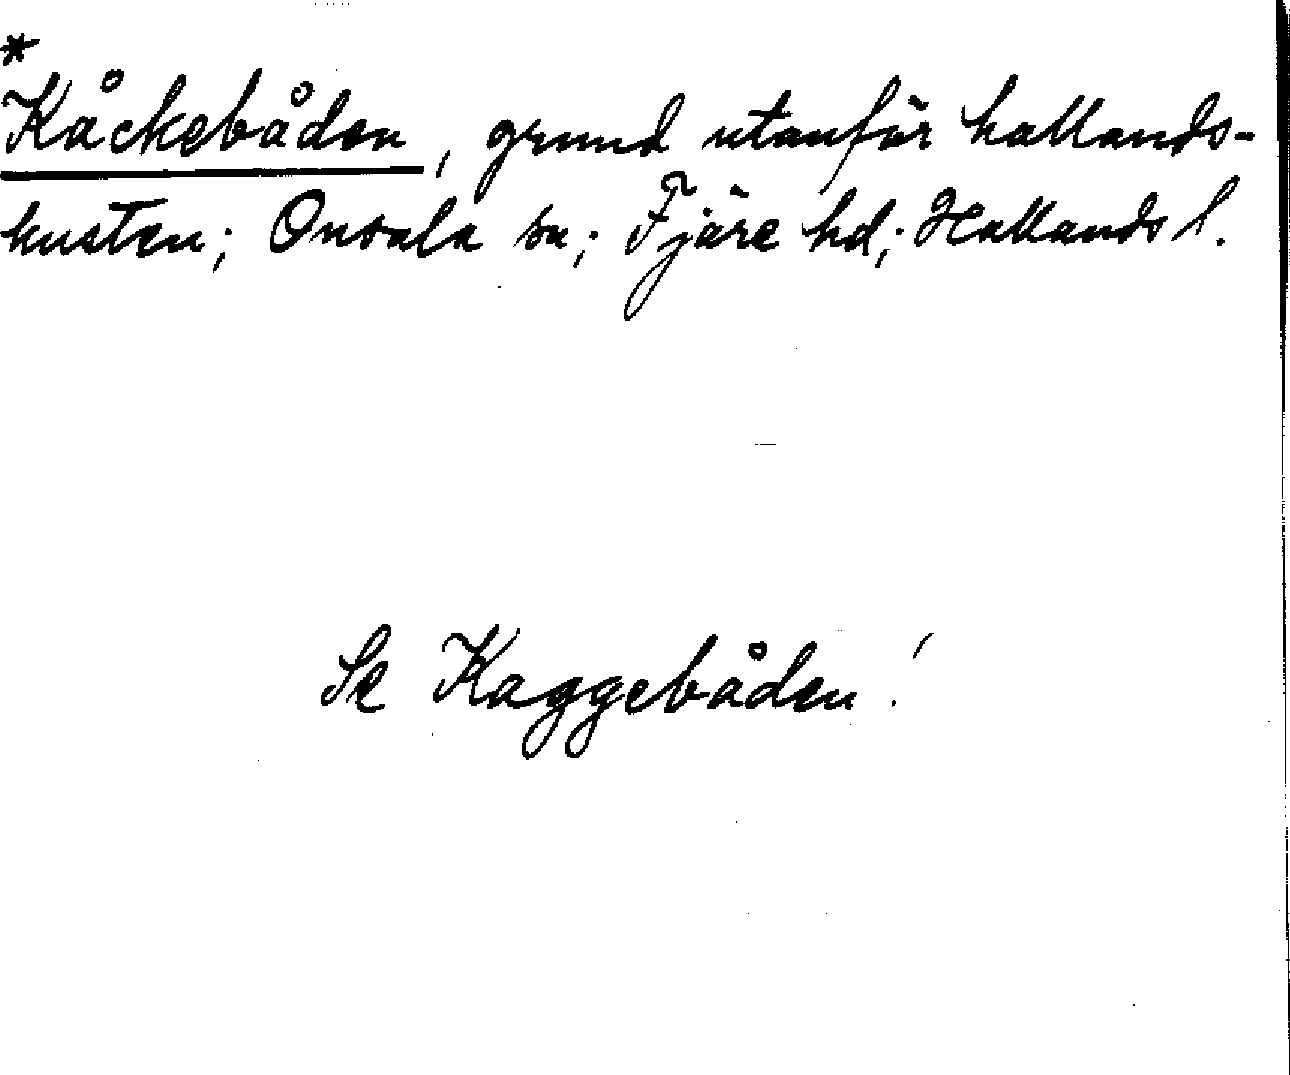 *
Kåckebåden, grund utanför hallands-
kusten; Onsala sn; Fjäre hd; Hallands l.
Se Kaggebåden!